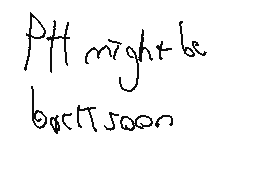 PH might be
back soon